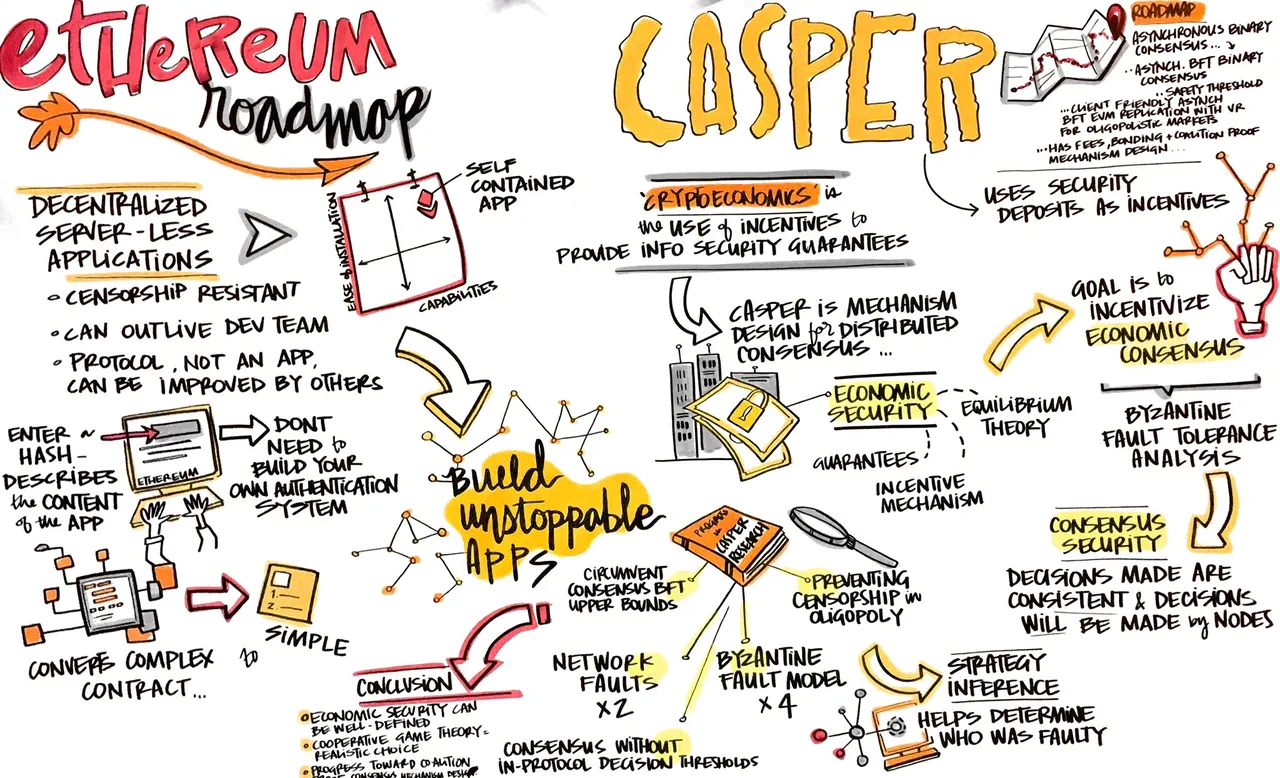 ETHEREUM
roadmap
DECENTRALIZED
SERVER-LESS
APPLICATIONS
CENSORSHIP RESISTANT
CAN OUTLIVE DEV TEAM
PROTOCOL, NOT AN APP,
CAN BE IMPROVED BY OTHERS
SELF
CONTAINED
APP
EASE of INSTALLATION
CAPABILITIES
ENTER
HASH-
DESCRIBES
the CONTENT
of the APP
ETHEREUM
DONT
NEED to
BUILD YOUR
OWN AUTHENTICATION
SYSTEM
CONVERTS COMPLEX to
CONTRACT...
1.
2.
SIMPLE
Build
unstoppable
APPS
CONCLUSION
ECONOMIC SECURITY CAN
BE WELL-DEFINED
COOPERATIVE GAME THEORY =
REALISTIC CHOICE
PROGRESS TOWARD COALITION
PROOF CONSENSUS MECHANISM DESIGN
CASPER
ROADMAP
ASYNCHRONOUS BINARY
CONSENSUS...
..ASYNCH. BFT BINARY
CONSENSUS
..SAFETY THRESHOLD
...CLIENT FRIENDLY ASYNCH
BFT EVM REPLICATION WITH VR
FOR OLIGOPOLISTIC MARKETS
...HAS FEES, BONDING + COALITION PROOF
MECHANISM DESIGN...
'CRYPTOECONOMICS' is
the USE of INCENTIVES to
PROVIDE INFO SECURITY GUARANTEES
USES SECURITY
DEPOSITS AS INCENTIVES
CASPER IS MECHANISM
DESIGN for DISTRIBUTED
CONSENSUS ...
ECONOMIC
SECURITY
EQUILIBRIUM
THEORY
GUARANTEES
INCENTIVE
MECHANISM
GOAL IS to
INCENTIVIZE
ECONOMIC
CONSENSUS
BYZANTINE
FAULT TOLERANCE
ANALYSIS
CONSENSUS
SECURITY
DECISIONS MADE ARE
CONSISTENT & DECISIONS
WILL BE MADE by NODES
PROGRESS in
CASPER
RESEARCH
CIRCUMVENT
CONSENSUS BFT
UPPER BOUNDS
PREVENTING
CENSORSHIP in
OLIGOPOLY
NETWORK
FAULTS
x2
BYZANTINE
FAULT MODEL
x4
CONSENSUS WITHOUT
IN-PROTOCOL DECISION THRESHOLDS
STRATEGY
INFERENCE
HELPS DETERMINE
WHO WAS FAULTY